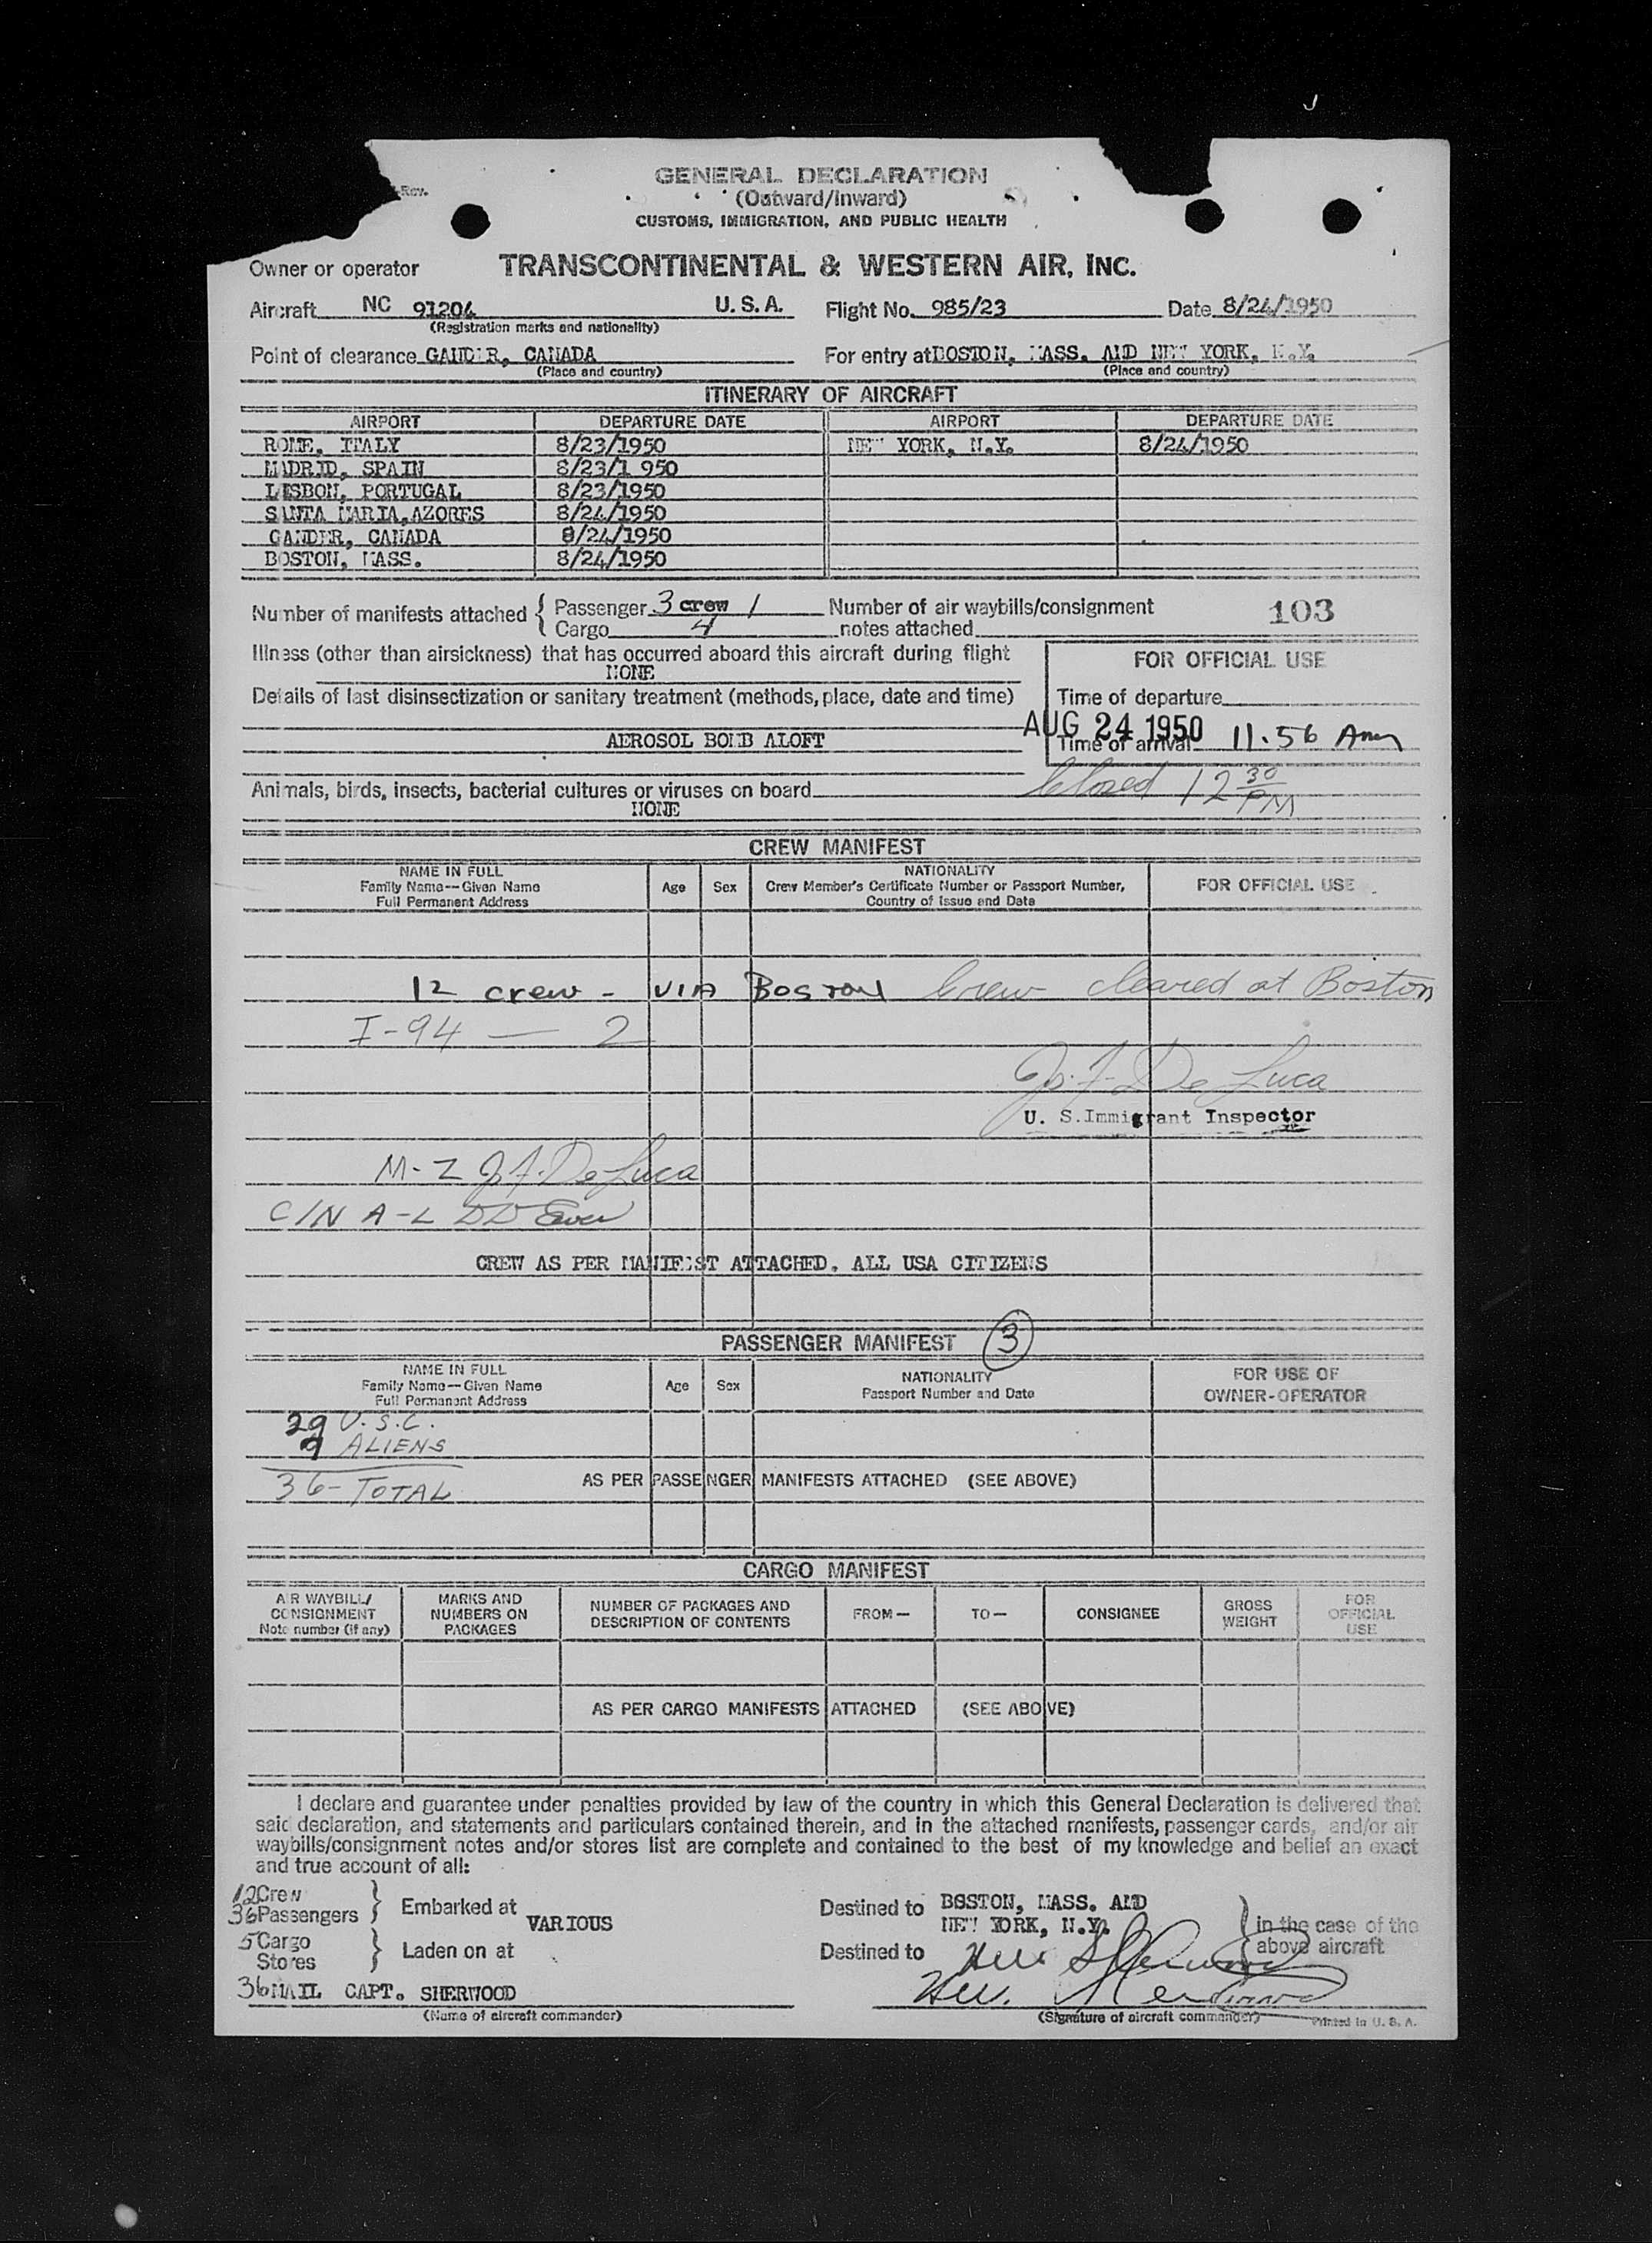 -Rev.
GENERAL DECLARATION
(Outward/Inward)
CUSTOMS, IMMIGRATION, AND PUBLIC HEALTH
Owner or operator TRANSCONTINENTAL & WESTERN AIR, INC.
Aircraft NC 91204 U.S.A. Flight No. 985/23 Date 8/24/1950
(Registration marks and nationality)
Point of clearance GANDER, CANADA For entry at BOSTON, MASS. AND NEW YORK, N.Y.
(Place and country) (Place and country)
ITINERARY OF AIRCRAFT
AIRPORT DEPARTURE DATE AIRPORT DEPARTURE DATE
ROME, ITALY 8/23/1950 NEW YORK, N.Y. 8/24/1950
MADRID, SPAIN 8/23/1 950
LISBON, PORTUGAL 8/23/1950
SANTA MARIA,AZORES 8/24/1950
GANDER, CANADA 8/24/1950
BOSTON, MASS. 8/24/1950
Number of manifests attached { Passenger 3 crew 1 Number of air waybills/consignment 103
Cargo 4 notes attached
Illness (other than airsickness) that has occurred aboard this aircraft during flight
NONE
FOR OFFICIAL USE
Details of last disinsectization or sanitary treatment (methods, place, date and time)
Time of departure
AUG 24 1950
AEROSOL BOMB ALOFT
Time of arrival 11.56 Am
Closed 12 30 PM
Animals, birds, insects, bacterial cultures or viruses on board
NONE
CREW MANIFEST
NAME IN FULL
Family Name—Given Name
Full Permanent Address
Age Sex
NATIONALITY
Crew Member's Certificate Number or Passport Number,
Country of Issue and Date
FOR OFFICIAL USE
12 crew - VIA Boston Crew cleared at Boston
I-94 — 2
J. F. De Luca
U. S.Immigrant Inspector
M-Z J F. De Luca
C/N A-L
CREW AS PER MANIFEST ATTACHED. ALL USA CITIZENS
PASSENGER MANIFEST 3
NAME IN FULL
Family Name—Given Name
Full Permanent Address
Age Sex
NATIONALITY
Passport Number and Date
FOR USE OF
OWNER-OPERATOR
U.S.C.
9 ALIENS
36-TOTAL AS PER PASSENGER MANIFESTS ATTACHED (SEE ABOVE)
CARGO MANIFEST
AIR WAYBILL/
CONSIGNMENT
Note number (if any)
MARKS AND
NUMBERS ON
PACKAGES
NUMBER OF PACKAGES AND
DESCRIPTION OF CONTENTS
FROM— TO— CONSIGNEE
GROSS
WEIGHT
FOR
OFFICIAL
USE
AS PER CARGO MANIFESTS ATTACHED (SEE ABOVE)
I declare and guarantee under penalties provided by law of the country in which this General Declaration is delivered that
said declaration, and statements and particulars contained therein, and in the attached manifests, passenger cards, and/or air
waybills/consignment notes and/or stores list are complete and contained to the best of my knowledge and belief an exact
and true account of all:
12 Crew
36 Passengers } Embarked at VARIOUS Destined to BOSTON, MASS. AND
NEW YORK, N.Y.
5 Cargo
Stores } Laden on at Destined to
} in the case of the
above aircraft
36 MAIL CAPT. SHERWOOD
(Name of aircraft commander) (Signature of aircraft commander) Printed in U. S. A.